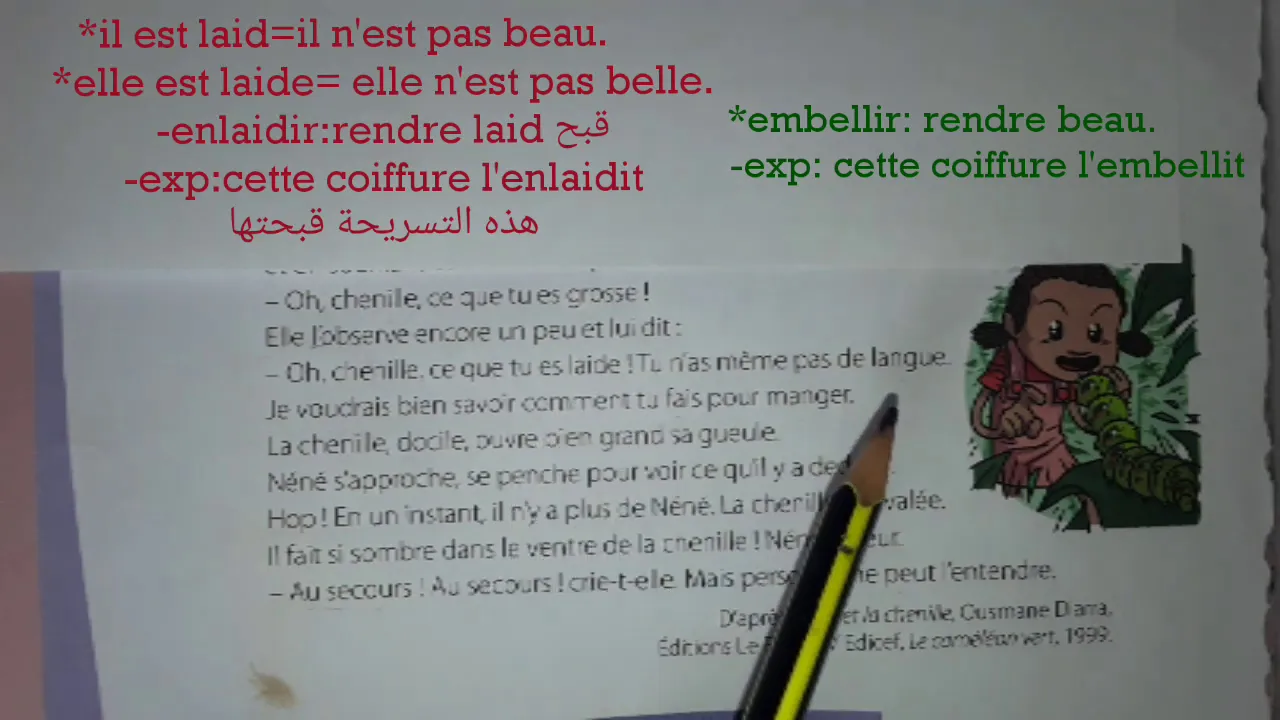 *il est laid=il n'est pas beau.
*elle est laide= elle n'est pas belle.
-enlaidir:rendre laid قبح
-exp:cette coiffure l'enlaidit
هذه التسريحة قبحتها
*embellir: rendre beau.
-exp: cette coiffure l'embellit
– Oh, chenille, ce que tu es grosse !
Elle l'observe encore un peu et lui dit :
– Oh, chenille, ce que tu es laide ! Tu n'as même pas de langue.
Je voudrais bien savoir comment tu fais pour manger.
La chenille, docile, ouvre bien grand sa gueule.
Néné s'approche, se penche pour voir ce qu'il y a
Hop ! En un instant, il n'y a plus de Néné. La
Il fait si sombre dans le ventre de la chenille !
– Au secours ! Au secours ! crie-t-elle. Mais peut l'entendre.
et la chenille, Ousmane Diarra,
Éditions Edicef, Le caméléon vert, 1999.